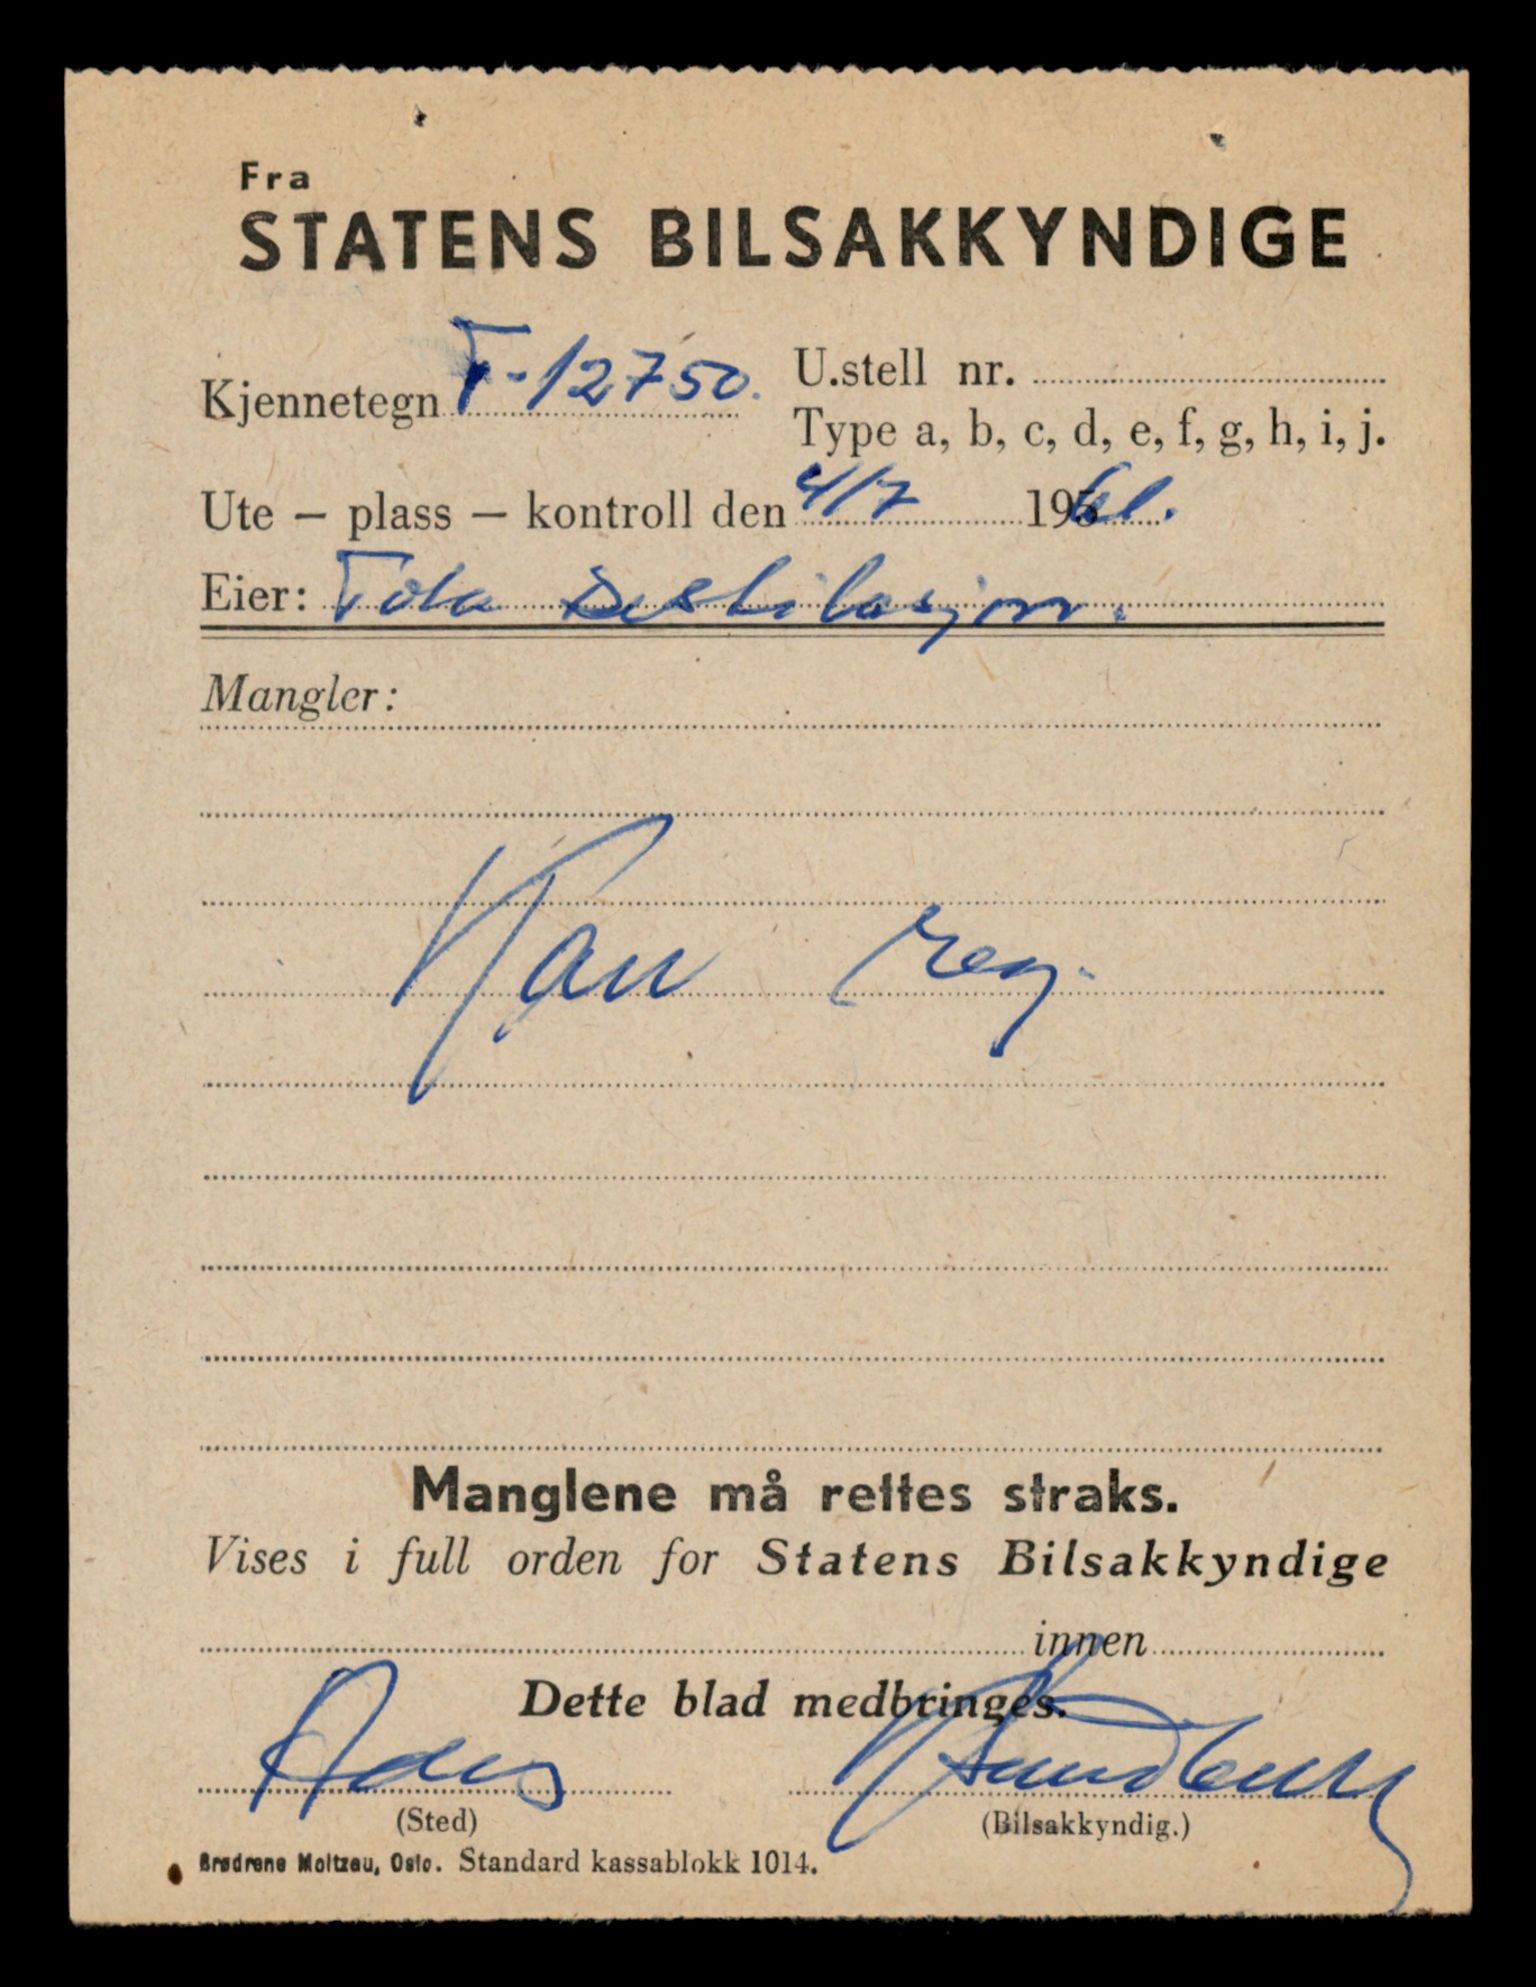 Fra
STATENS BILSAKKYNDIGE
Kjennetegn T-12750. U.stell nr.
Type a, b, c, d, e, f, g, h, i, j.
Ute – plass – kontroll den 4/7 1961.
Eier: Destilasjon.
Mangler:
Kan reg.
Manglene må rettes straks.
Vises i full orden for Statens Bilsakkyndige
innen
Dette blad medbringes.
(Sted) (Bilsakkyndig.)
Brødrene Moltzau, Oslo. Standard kassablokk 1014.